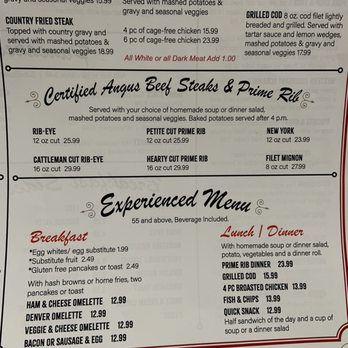 and seasonal veggies 15.99
COUNTRY FRIED STEAK
Topped with country gravy and
served with mashed potatoes &
gravy and seasonal veggies 18.99
Served with
mashed potatoes & gravy
and seasonal veggies
4 pc of cage-free chicken 15.99
6 pc of cage-free chicken 23.99
GRILLED COD 8 oz. cod filet lightly
breaded and grilled. Served with
tartar sauce and lemon wedges,
mashed potatoes & gravy and
seasonal veggies 17.99
All White or all Dark Meat Add 1.00
Certified Angus Beef Steaks & Prime Rib
Served with your choice of homemade soup or dinner salad,
mashed potatoes and seasonal veggies. Baked potatoes served after 4 p.m.
RIB-EYE
12 oz cut 25.99
PETITE CUT PRIME RIB
12 oz cut 25.99
NEW YORK
12 oz cut 23.99
CATTLEMAN CUT RIB-EYE
16 oz cut 29.99
HEARTY CUT PRIME RIB
16 oz cut 29.99
FILET MIGNON
8 oz cut 27.99
Experienced Menu
55 and above, Beverage Included.
Breakfast
*Egg whites/ egg substitute 1.99
*Substitute fruit 2.49
*Gluten free pancakes or toast 2.49
With hash browns or home fries, two
pancakes or toast
HAM & CHEESE OMELETTE 12.99
DENVER OMELETTE 12.99
VEGGIE & CHEESE OMELETTE 12.99
BACON OR SAUSAGE & EGG 12.99
Lunch / Dinner
With homemade soup or dinner salad,
potato, vegetables and a dinner roll.
PRIME RIB DINNER 23.99
GRILLED COD 15.99
4 PC BROASTED CHICKEN 13.99
FISH & CHIPS 13.99
QUICK SNACK 12.99
Half sandwich of the day and a cup
of soup or a dinner salad